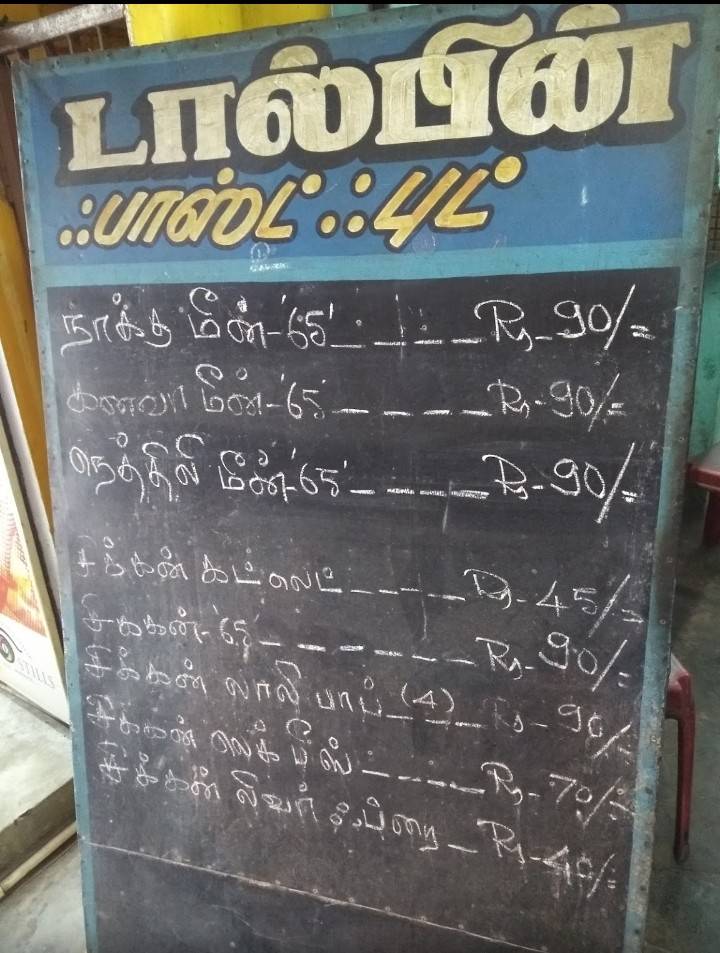 டால்பின்
ஃபாஸ்ட் ஃபுட்
நாக்கு மீன்-'65' _ _ _ _ _ Rs-90/=
கனவா மீன்-'65' _ _ _ _ Rs-90/=
நெத்திலி மீன்-'65' _ _ _ _ Rs-90/=
சிக்கன் கட்லெட் _ _ _ _ _ Rs-45/=
சிக்கன்-'65' _ _ _ _ _ _ Rs-90/=
சிக்கன் லாலி பாப் (4) _ Rs-90/=
சிக்கன் லெக் பீஸ் _ _ _ _ _ Rs-70/=
சிக்கன் லிவர் ஃப்ரை _ Rs-40/=
STILLS